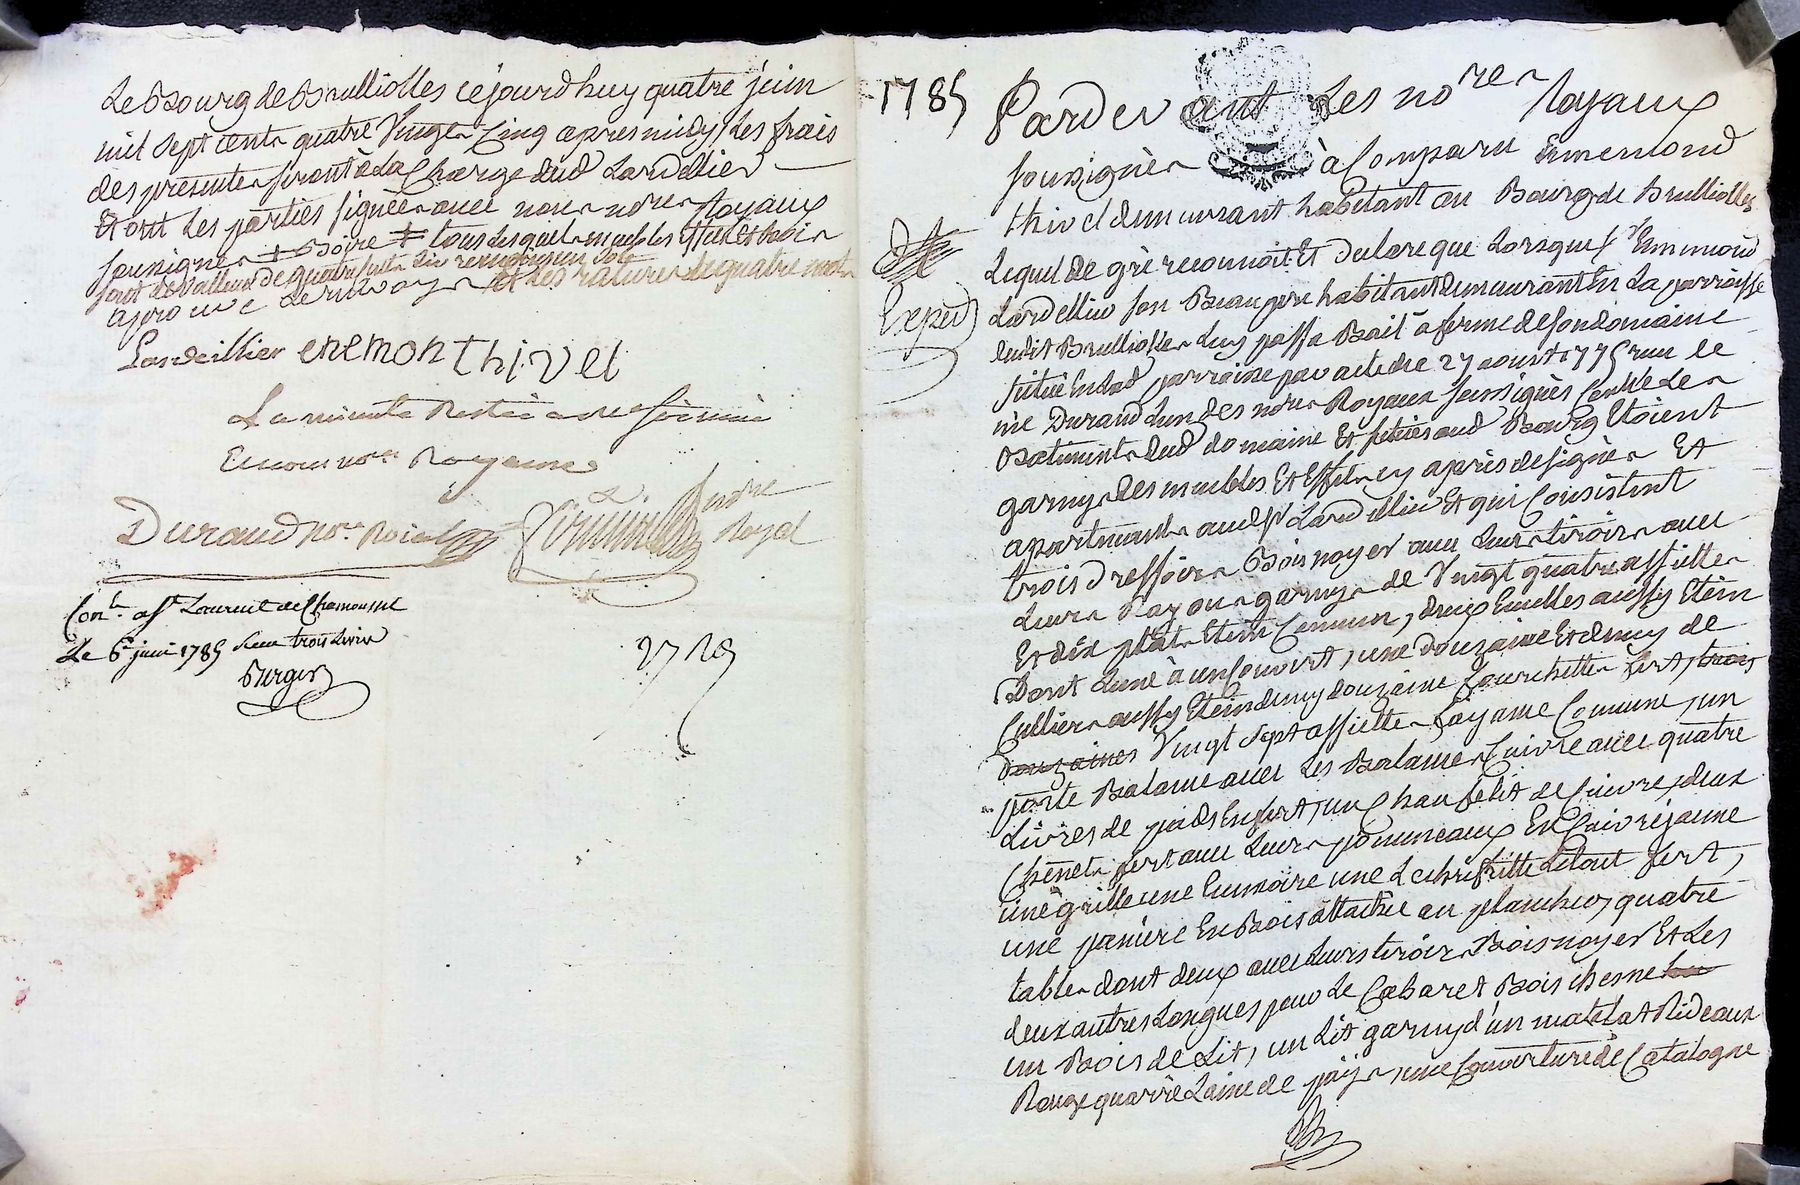 Le Bourg de Brulliolles cejourdhuy quatre juin
mil sept cents quatre Vingts Cinq apres midy Les frais
des presentes seront à La Charge dud Lardellier
Et ont Les parties signées avec nous nores Royaux
soussignés ‡ Boire ‡ tous Lesquels meubles
sont de valleur de
aprouvé Le renvoy et Les ratures de quatre mots
Lardeillier enemon thivel
La minute Restée à
nore Royaux
Durand nore Roial
nore Royal
Conlé à St Laurent de Chamousset
Le 6e juin 1785 Reçu trois Livres
1785
Pardevant Les nores Royaux
soussignés à Comparu Ennemond
thivel demeurant habitant au Bourg de Brulliolles
Lequel de gré reconnoit Et declare que Lorsque Sr Ennemond
Lardellier son Beau pere habitant demeurant En La parroisse
dudit Brulliolles Luy passa Bail à ferme de son domaine
situé En lad parroisse par acte du 27 aoust 1775 reçu le
me Durand L'un des nores Royaux soussignés Les
Batiments dud domaine Et situés aud Bourg Etoient
garnys des meubles Et Effets cy après designés Et
apartenants aud Sr Lardellier Et qui Consistent
trois dressoirs Bois noyer avec Leurs tiroirs avec
Leurs Rayons garnys de Vingt quatre assiettes
Et dix plats Etein Commun, deux Ecuelles aussy Etein
Dont L'une à un Couvert, une douzaine Et demy de
Culliers aussy Etein demy douzaine fourchettes fert, trois
douzaines Vingt sept assiettes fayance Comune, un
porte Balance avec Les Balances Cuivre avec quatre
Livres de poids En fert, un Chaufelit de Cuivre, deux
Chenets fert avec Leurs pommeaux En Cuivre jaune
une grille une une Lechefritte Le tout fert,
une paniere En Bois attachée au plancher, quatre
tables dont deux avec Leurs tiroirs Bois noyer Et Les
deux autres Longues pour Le Cabaret Bois chesne
un Bois de Lit, un Lit garny d'un matelat Rideaux
Rouge quarré Laine de pays, une Couverture de Catalogne